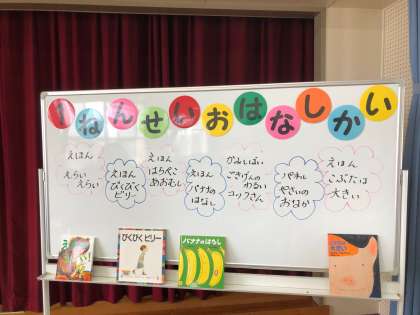 1ねんせいおはなしかい
えほん
えらい
えらい
えほん
びくびく
ビリー
えほん
はらぺこ
あおむし
えほん
バナナの
はなし
かみしばい
ごきげんの
わるい
コックさん
パネル
やさいの
おなか
えほん
こぶたは
大きい
びくびくビリー
バナナのはなし